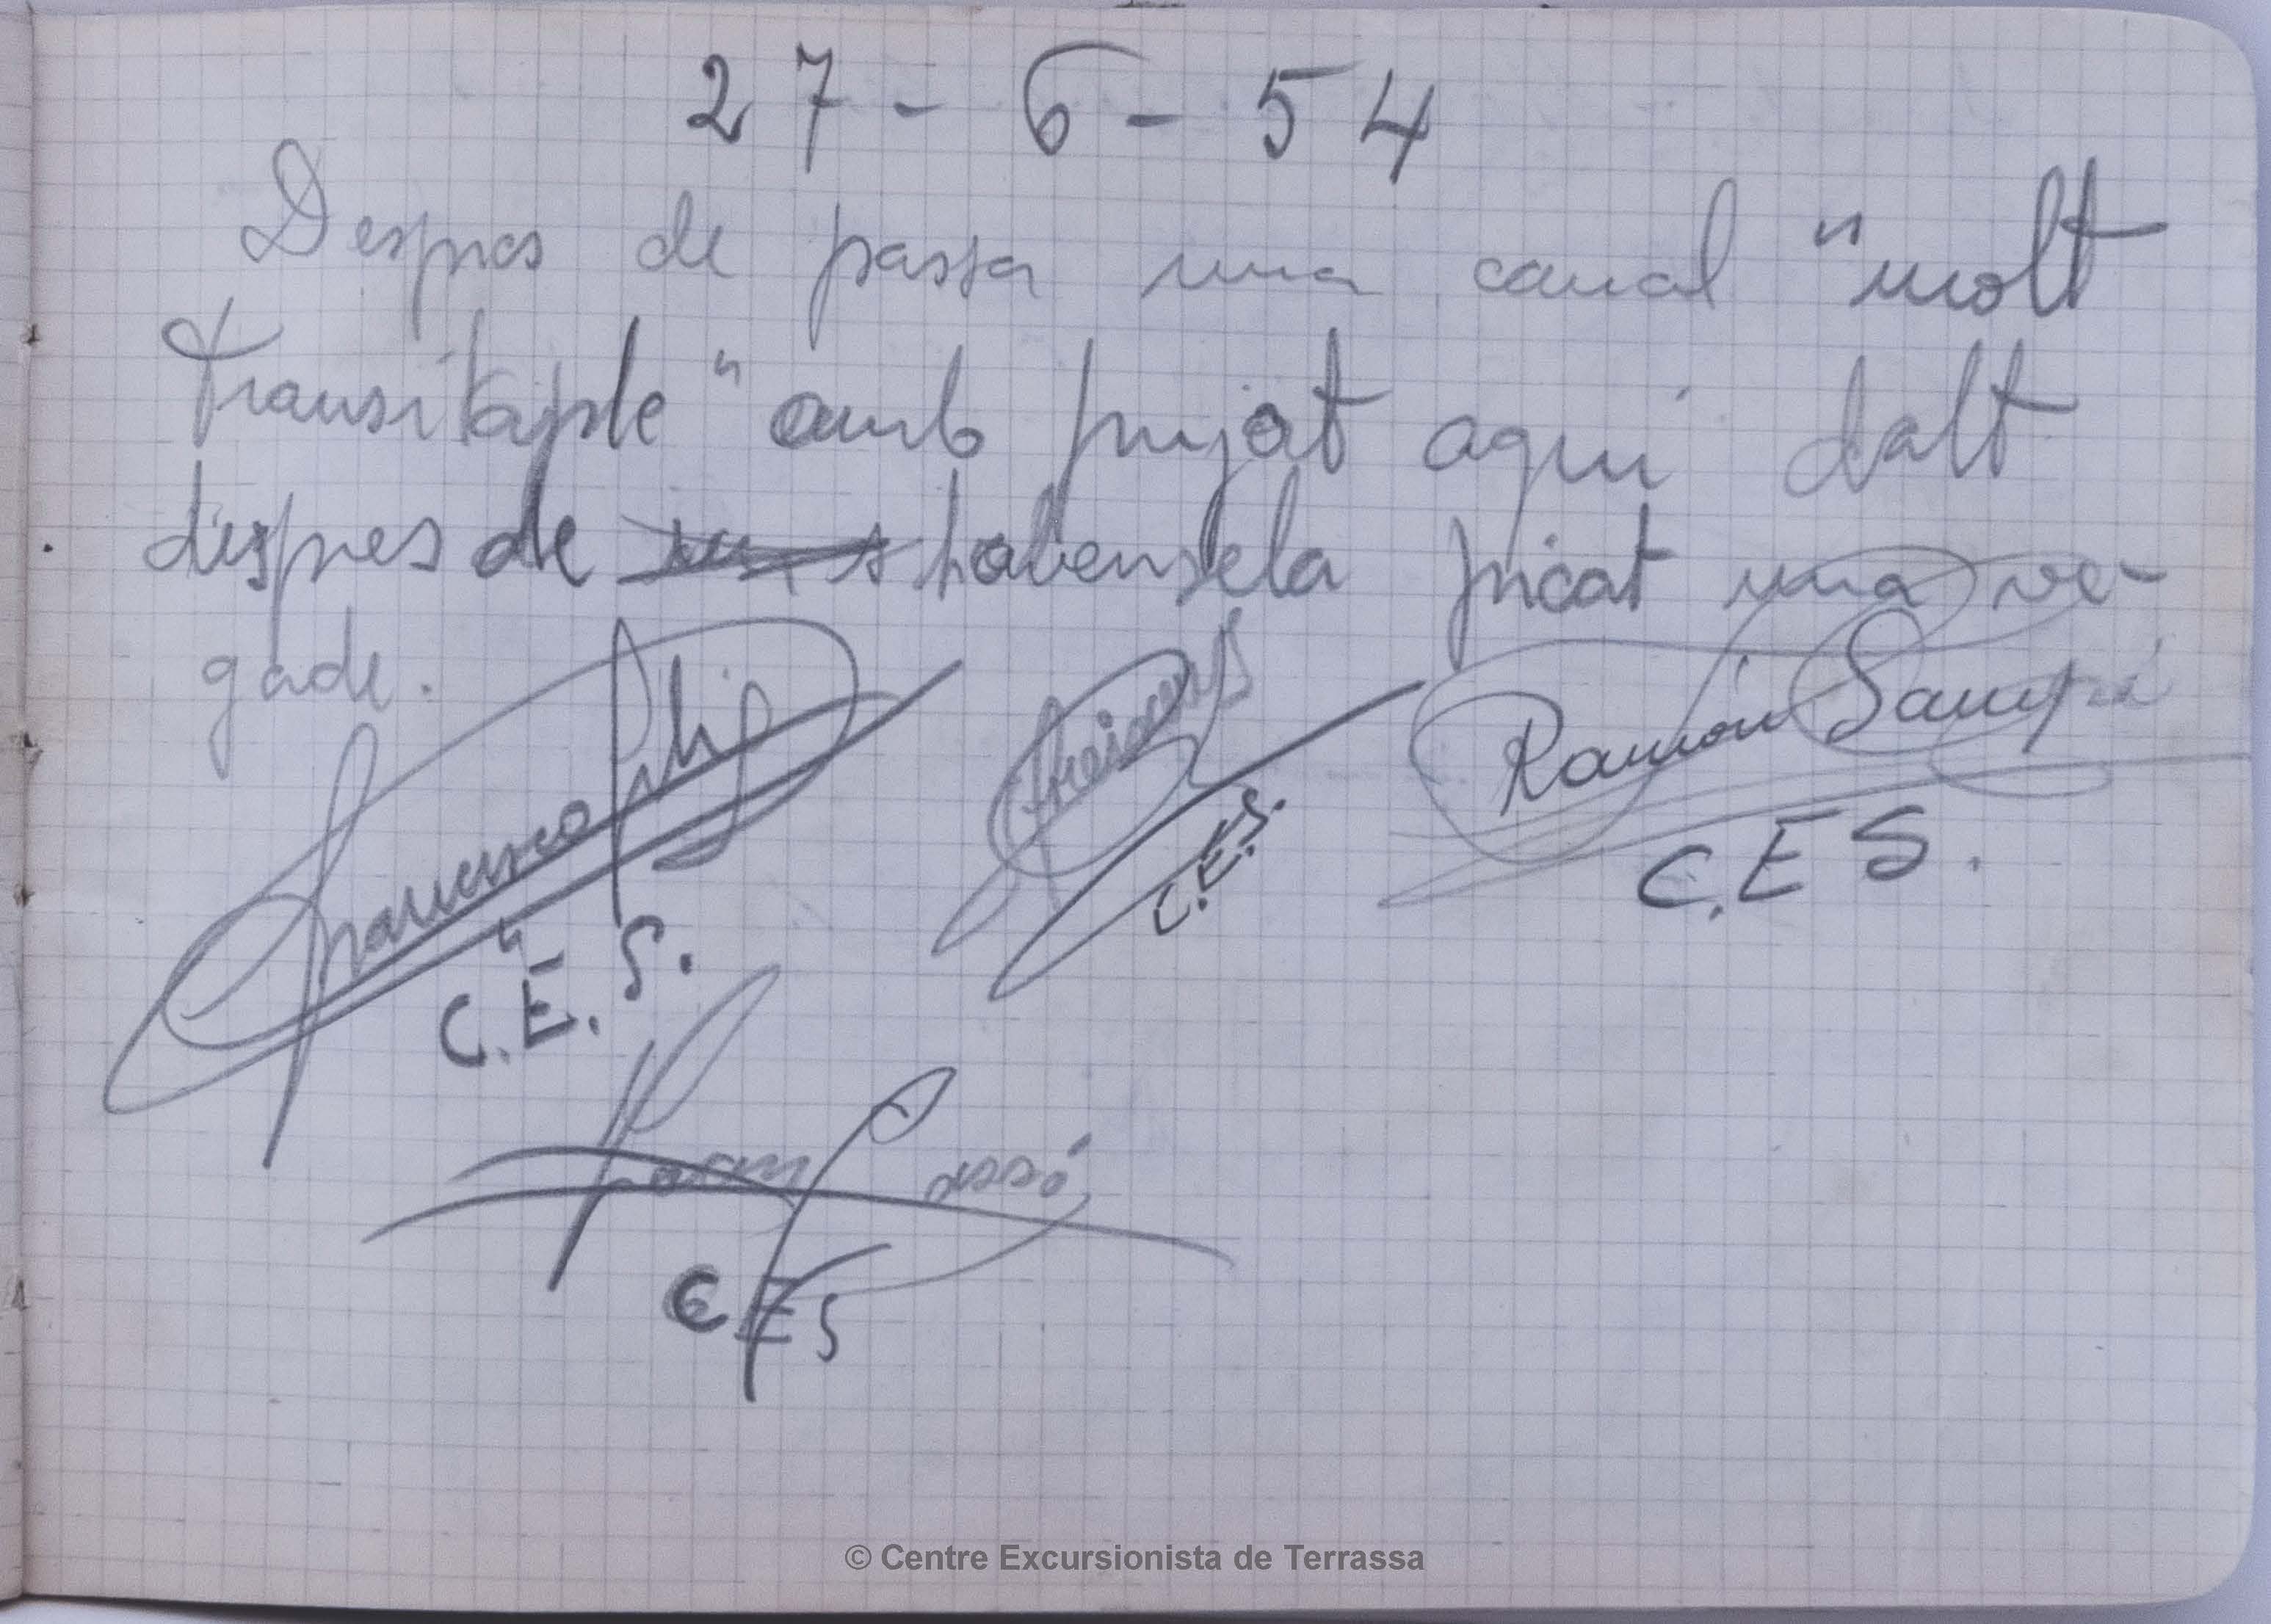 27-6-54
Despres de passa una canal "molt
transitaple" amb pujat aqui dalt
despres de habensela picat una ve-
gade.
Francesco
C.E.S.
C.E.S.
Ramón Sampé
C.E S.
Joan
C E S
© Centre Excursionista de Terrassa